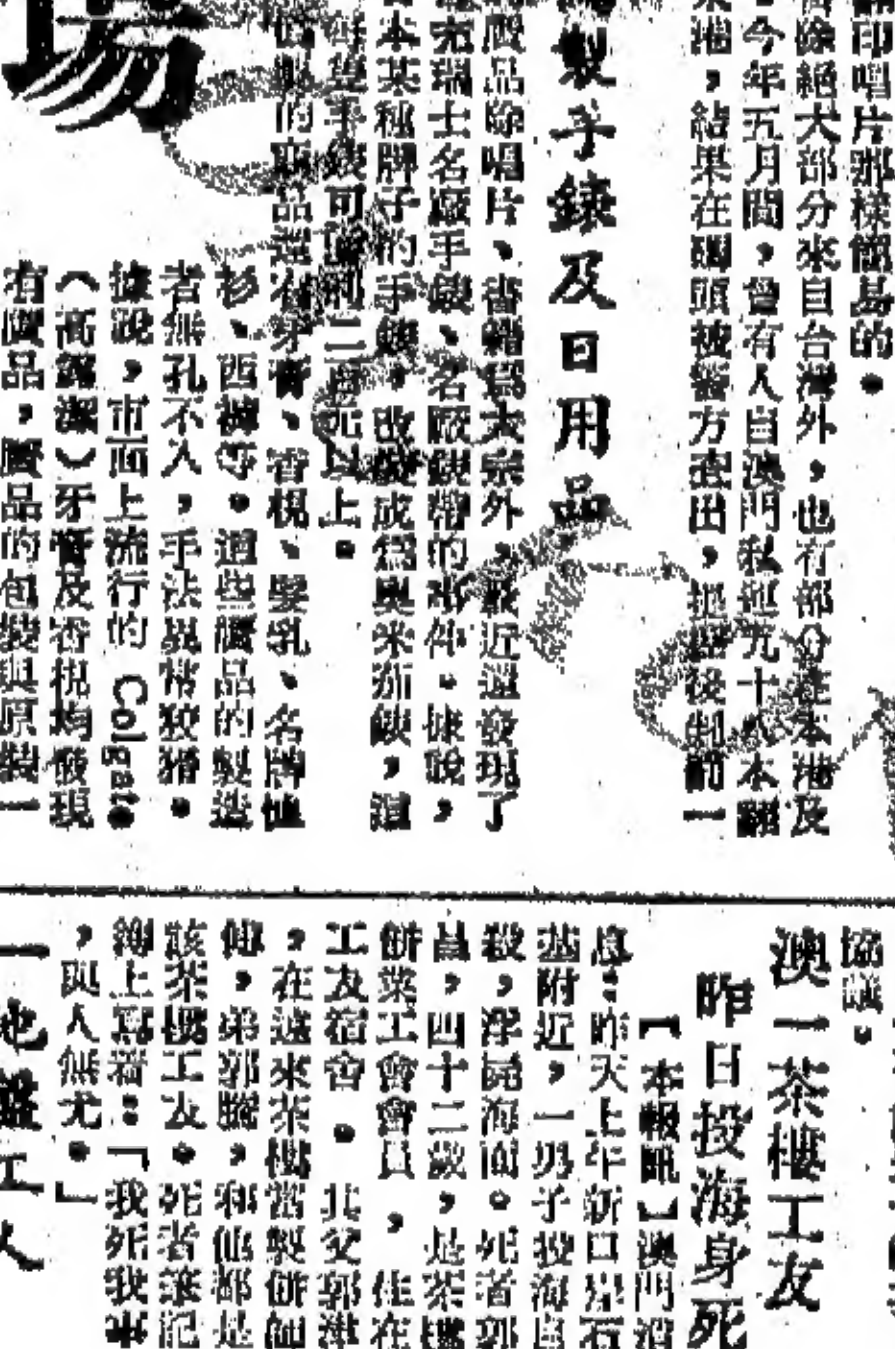 翻印唱片那樣簡易的。
除絕大部分來自台灣外，也有部分在本港及
今年五月間，曾有人自澳門私運九十八本翻
來港，結果在碼頭被警方查出，
製手錶及日用品
贋品除唱片、書籍為大宗外，最近還發現了
充瑞士名廠手錶、名廠錶帶的事件。據說，
本某種牌子的手錶，改裝成為奧米茄錶，這
每隻手錶可
二百元以上。
的贋品還有牙膏、香梘、髮乳、名牌恤
杉、西褲等。這些贋品的製造
者無孔不入，手法異常狡猾。
據說，市面上流行的 Colgate
（高露潔）牙膏及香梘均發現
有贋品，贋品的包裝與原裝一
場
協議。
澳一茶樓工友
昨日投海身死
【本報訊】澳門消
息：昨天上午新口岸石
基附近，一男子投海自
殺，浮屍海面。死者郭
昌，四十二歲，是茶樓
餅業工會會員，住在
工友宿舍。其父郭
，在遠來茶樓當製餅師
傅，弟郭騰，和他都是
該茶樓工友。死者筆記
簿上寫着：「我死我事
，與人無尤。」
一地盤工人